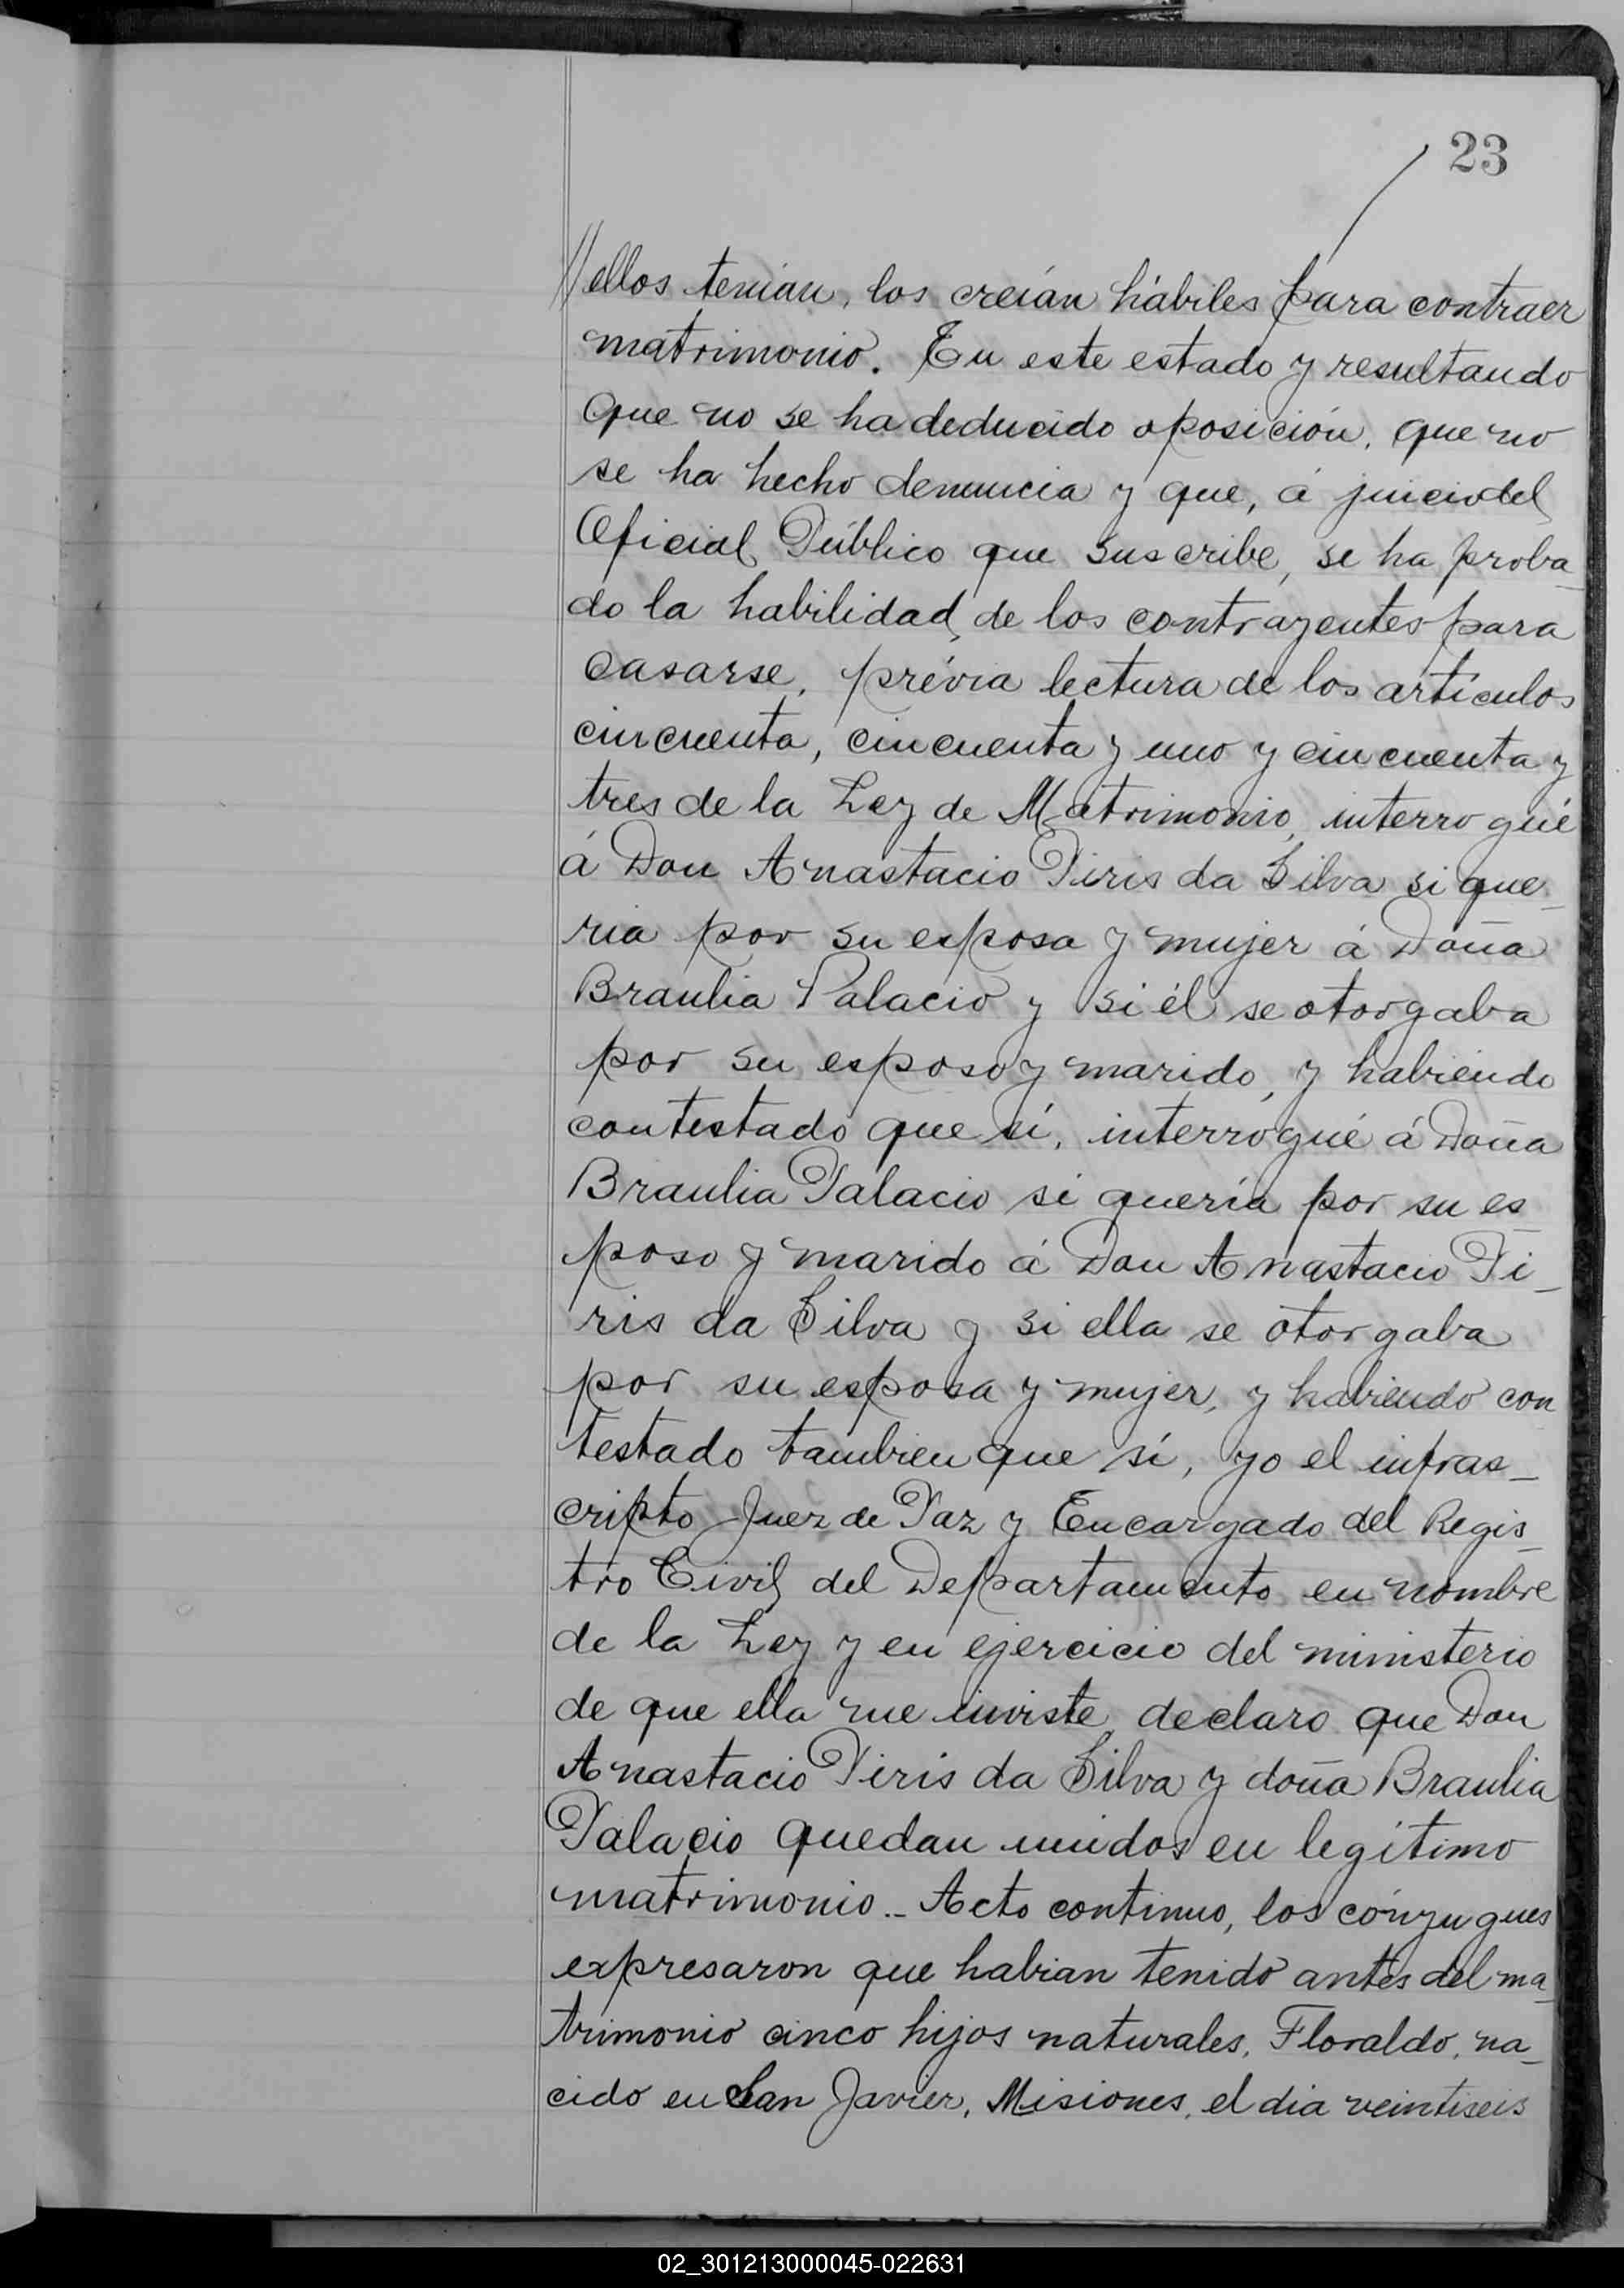 23
//ellos tenían, los creían hábiles para contraer
matrimonio. En este estado y resultando
que no se ha deducido oposición, que no
se ha hecho denuncia y que, á juicio del
Oficial Público que suscribe, se ha proba_
do la habilidad de los contrayentes para
casarse, prévia lectura de los artículos
cincuenta, cincuenta y uno y cincuenta y
tres de la Ley de Matrimonio, interrogué
á Don Anastacio Piris da Silva si que_
ria por su esposa y mujer á Doña
Braulia Palacio y si él se otorgaba
por su esposo y marido, y habiendo
contestado que sí, interrogué á Doña
Braulia Palacio si quería por su es_
poso y marido á Don Anastacio Pi_
ris da Silva y si ella se otorgaba
por su esposa y mujer, y habiendo con
testado tambien que sí, yo el infras_
cripto Juez de Paz y Encargado del Regis_
tro Civil del Departamento en nombre
de la Ley y en ejercicio del ministerio
de que ella me inviste declaro que Don
Anastacio Piris da Silva y doña Braulia
Palacio quedan unidos en legítimo
matrimonio._ Acto continuo, los cónyugues
expresaron que habian tenido antes del ma_
trimonio cinco hijos naturales, Floraldo, na_
cido en San Javier, Misiones, el dia veintiseis
02_301213000045-022631